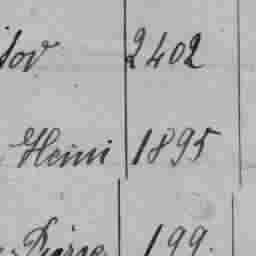 2402
Heini 1895
Pierre 199.